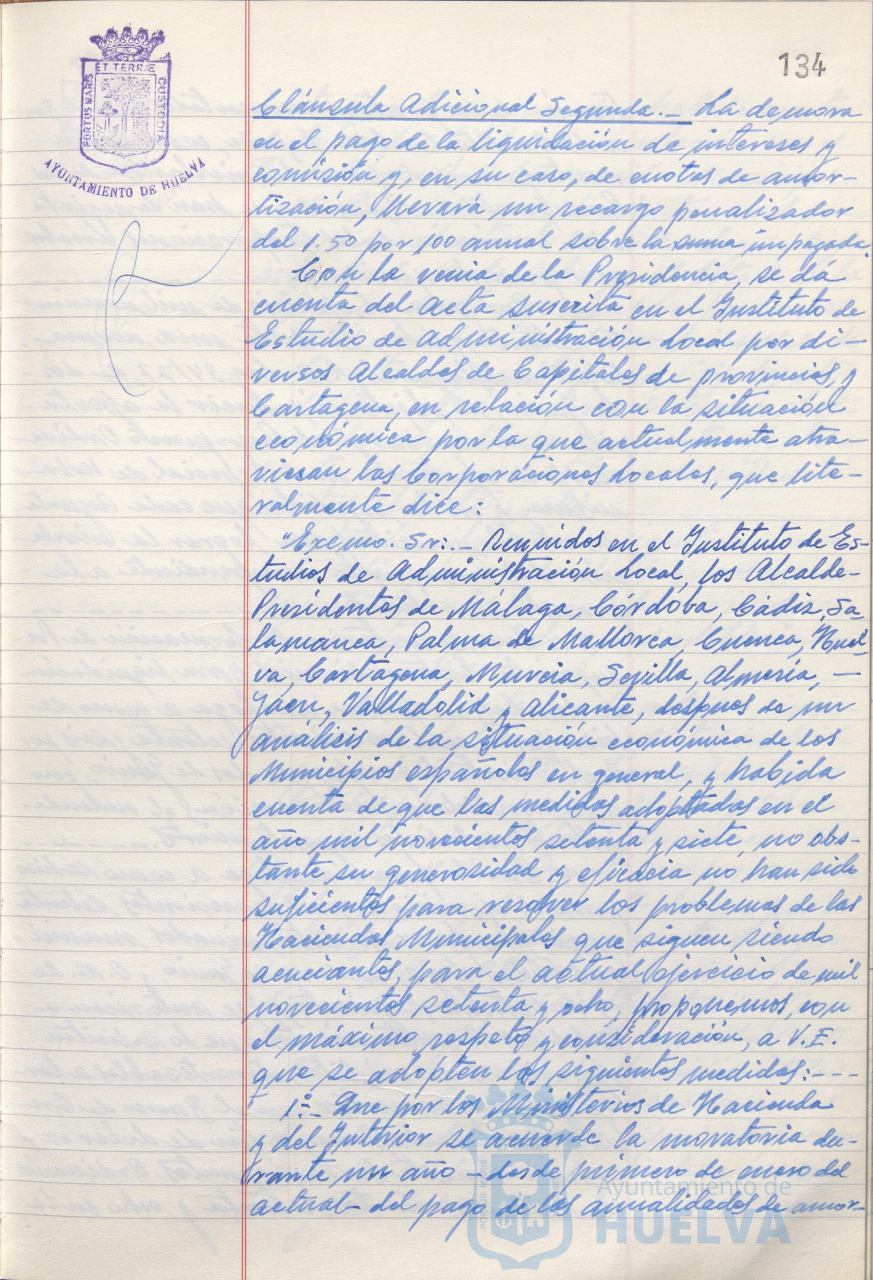 134
ET TERRÆ
PORTUS MARIS
CUSTODIA
AYUNTAMIENTO DE HUELVA
Cláusula Adicional Segunda.- La demora
en el pago de la liquidación de intereses y
comisión y, en su caso, de cuotas de amor-
tización, llevará un recargo penalizador
del 1.50 por 100 anual sobre la suma impagada.
Con la venia de la Presidencia, se dá
cuenta del acta suscrita en el Instituto de
Estudio de Administración Local por di-
versos Alcaldes de Capitales de provincias, y
Cartagena, en relación con la situación
económica por la que actualmente atra-
viesan las Corporaciones Locales, que lite-
ralmente dice:
"Excmo. Sr:.- Reunidos en el Instituto de Es-
tudios de Administración Local, los Alcalde-
Presidentes de Málaga, Córdoba, Cádiz, Sa-
lamanca, Palma de Mallorca, Cuenca, Huel-
va, Cartagena, Murcia, Sevilla, Almería, -
Jaen, Valladolid y Alicante, despues de un
análisis de la situación económica de los
Municipios españoles en general, y habida
cuenta de que las medidas adoptadas en el
año mil novecientos setenta y siete, no obs-
tante su generosidad y eficacia no han sido
suficientes para resolver los problemas de las
Haciendas Municipales que siguen siendo
acuciantes, para el actual ejercicio de mil
novecientos setenta y ocho, proponemos, con
el máximo respeto y consideración, a V.E.
que se adopten las siguientes medidas:---
1º.- Que por los Ministerios de Hacienda
y del Interior se acuerde la moratoria du-
rante un año - desde primero de enero del
actual- del pago de las anualidades de amor-
Ayuntamiento de
HUELVA